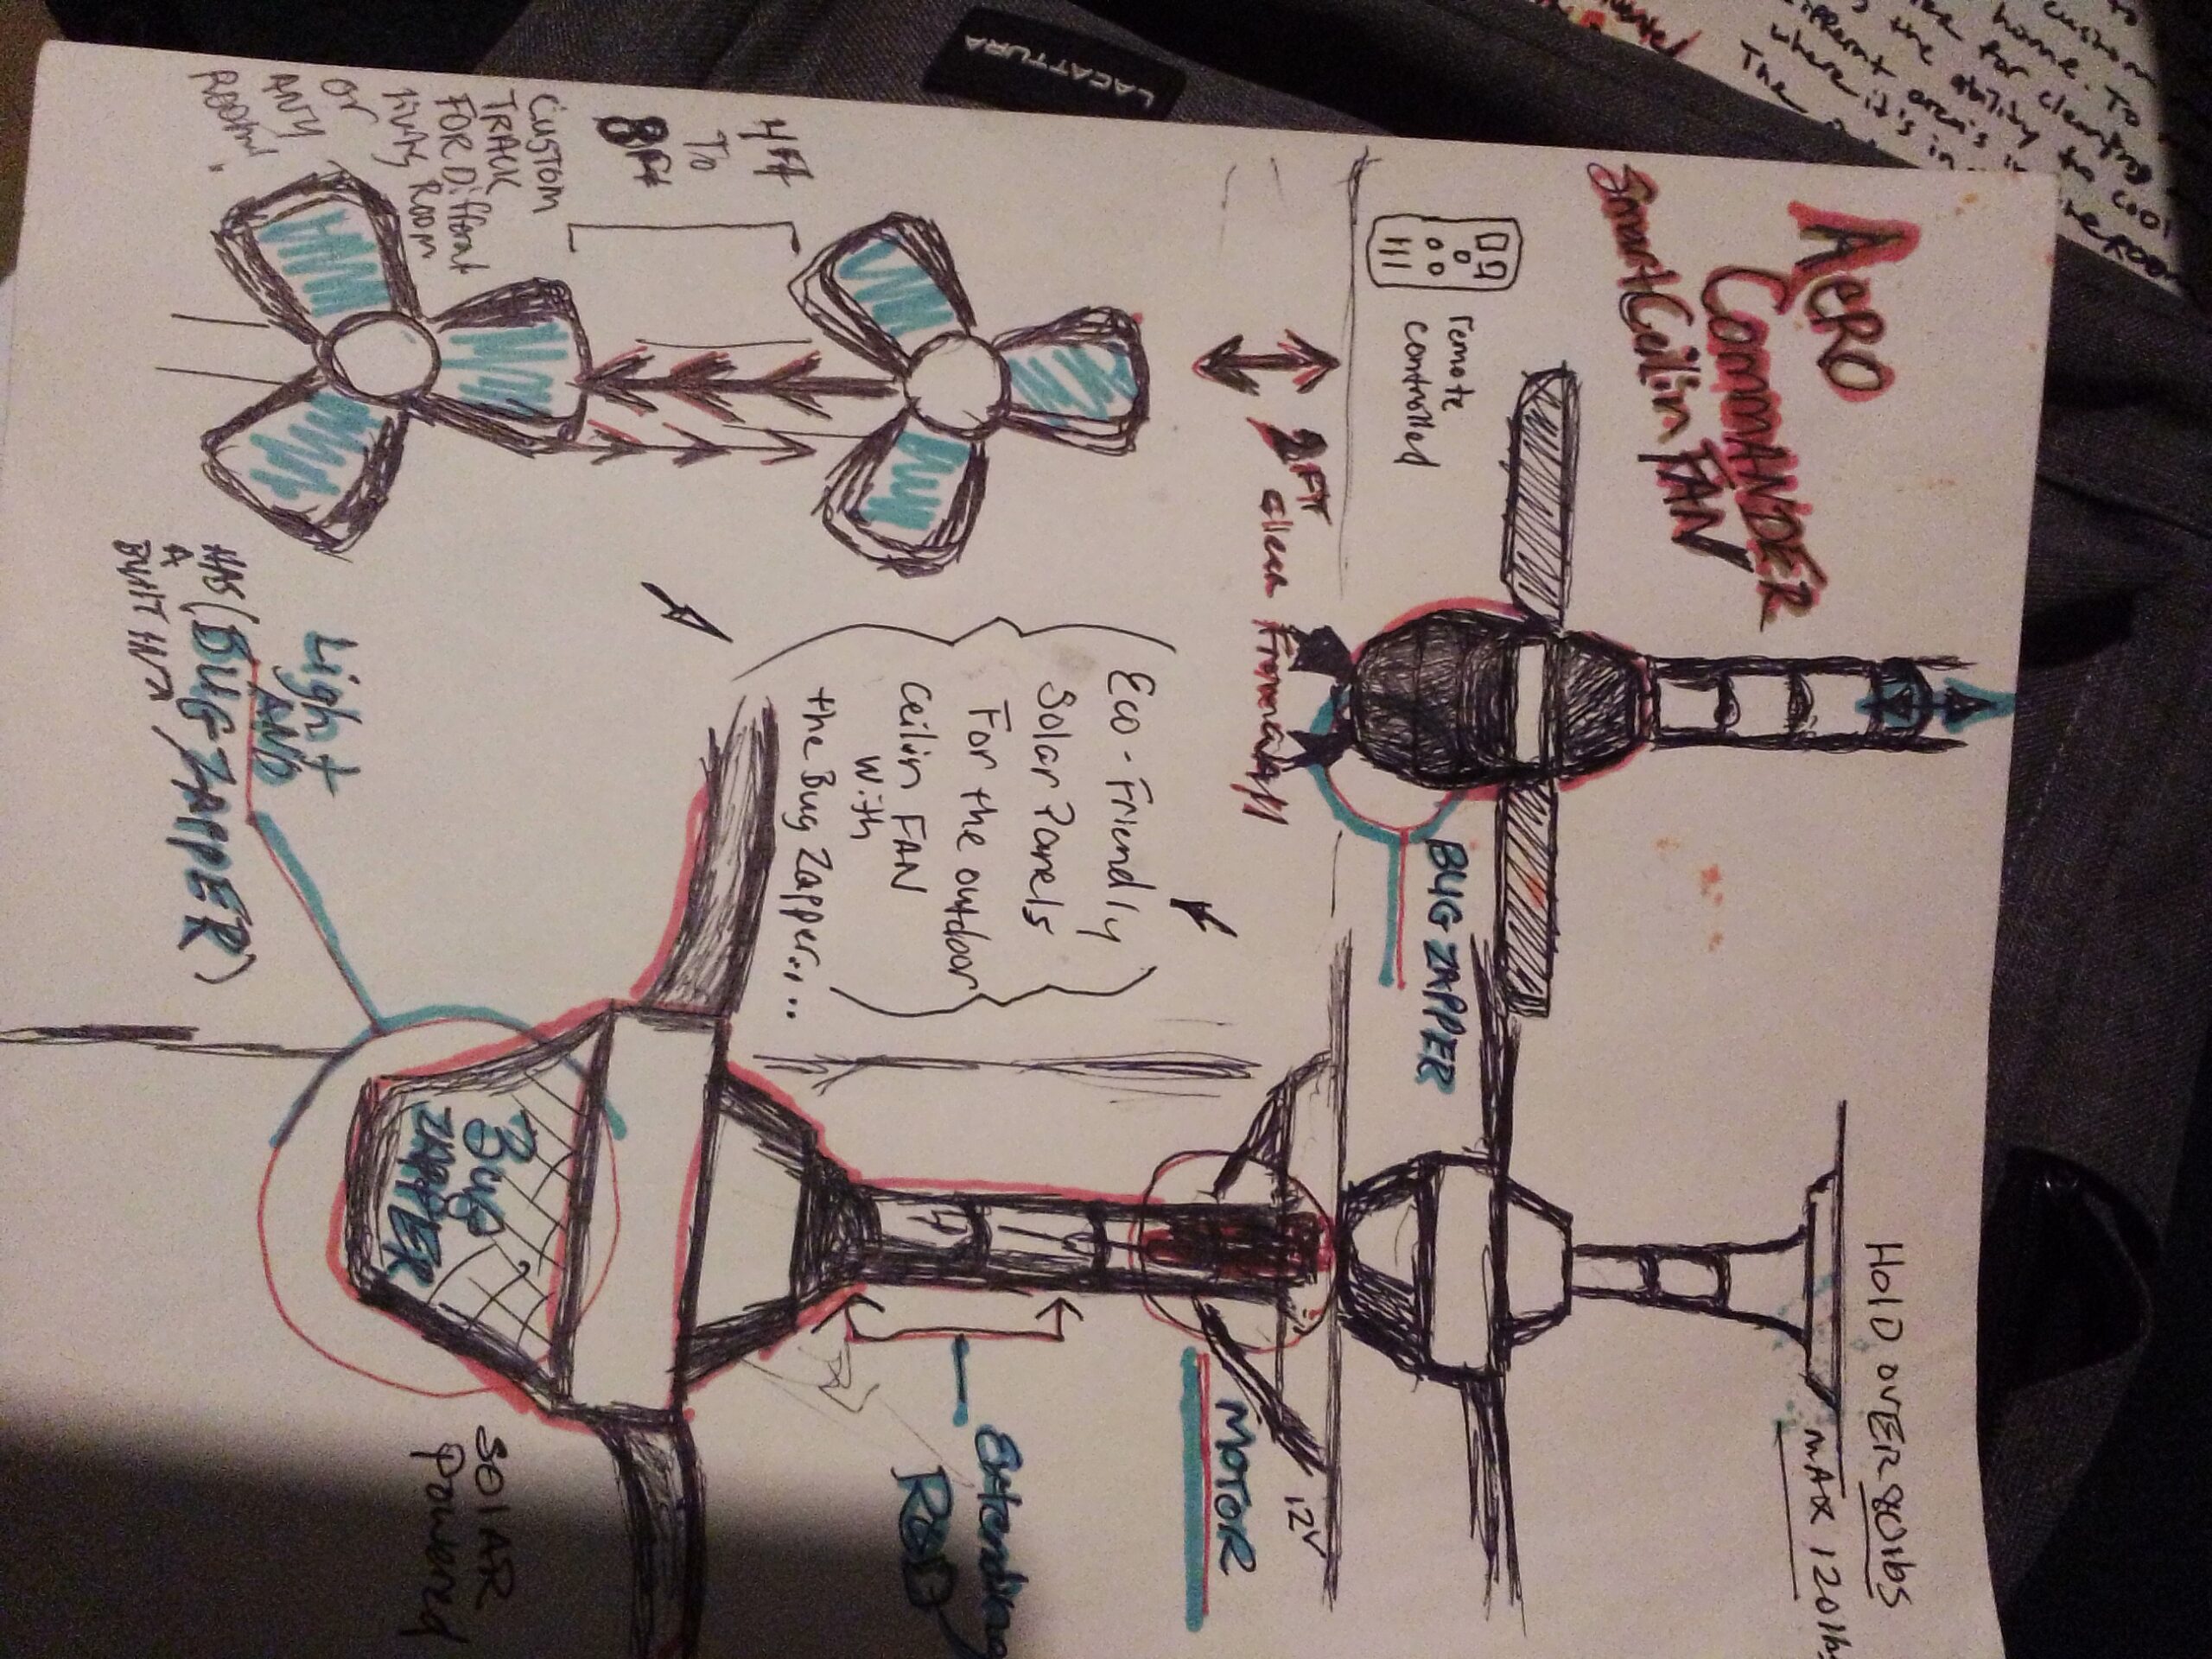 AERO
COMMANDER
Smart Ceilin FAN
remote
controlled
4ft
To
8ft
Custom
TRACK
FOR Differnt
living Room
or
ANY
ROOM!
2FT
From wall
BUG ZAPPER
HOlD OVER 80lbs
MAX 120lb
Eco-Friendly
Solar Panels
For the outdoor
Ceilin FAN
with
the Bug Zapper....
12V
MOTOR
Extending
ROD
Light
AND
(BUG ZAPPER)
HAS
A
BUILT IN
Bug
ZAPPER
SOLAR
Powered
LACATTURA
custom
home. To
for cleanting
the ability to cool
different area's in the room
where it's in
The